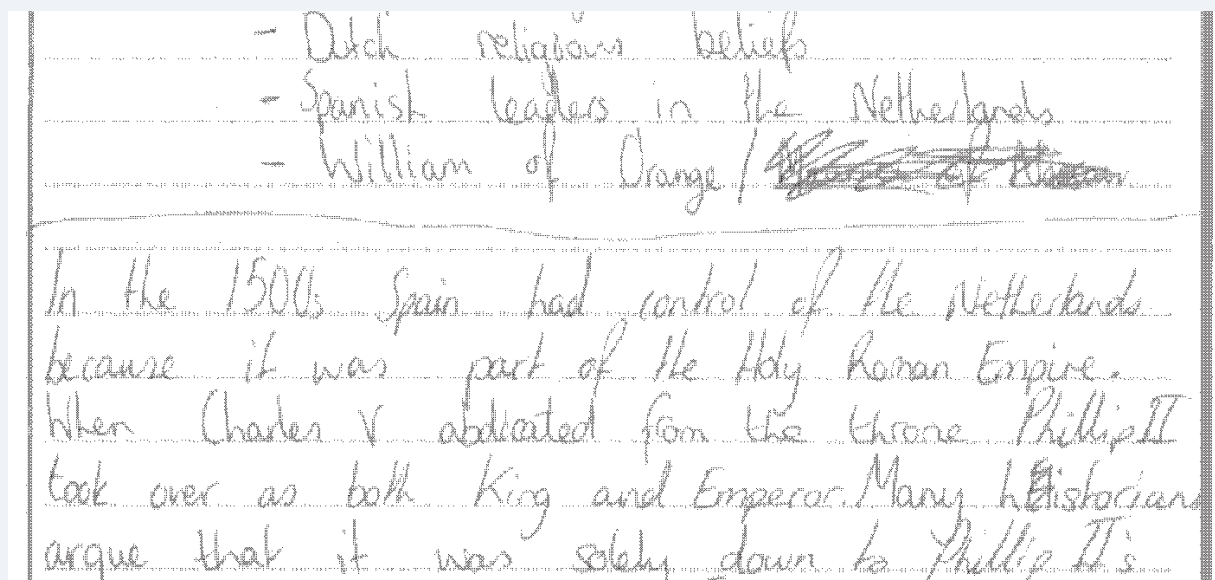 - Dutch religious beliefs
- Spanish leaders in the Netherlands
- William of Orange /
In the 1500s Spain had control of the Netherlands
because it was part of the Holy Roman Empire.
When Charles V abdicated from the throne Phillip II
took over as both King and Emperor. Many historians
argue that it was solely down to Phillip II's